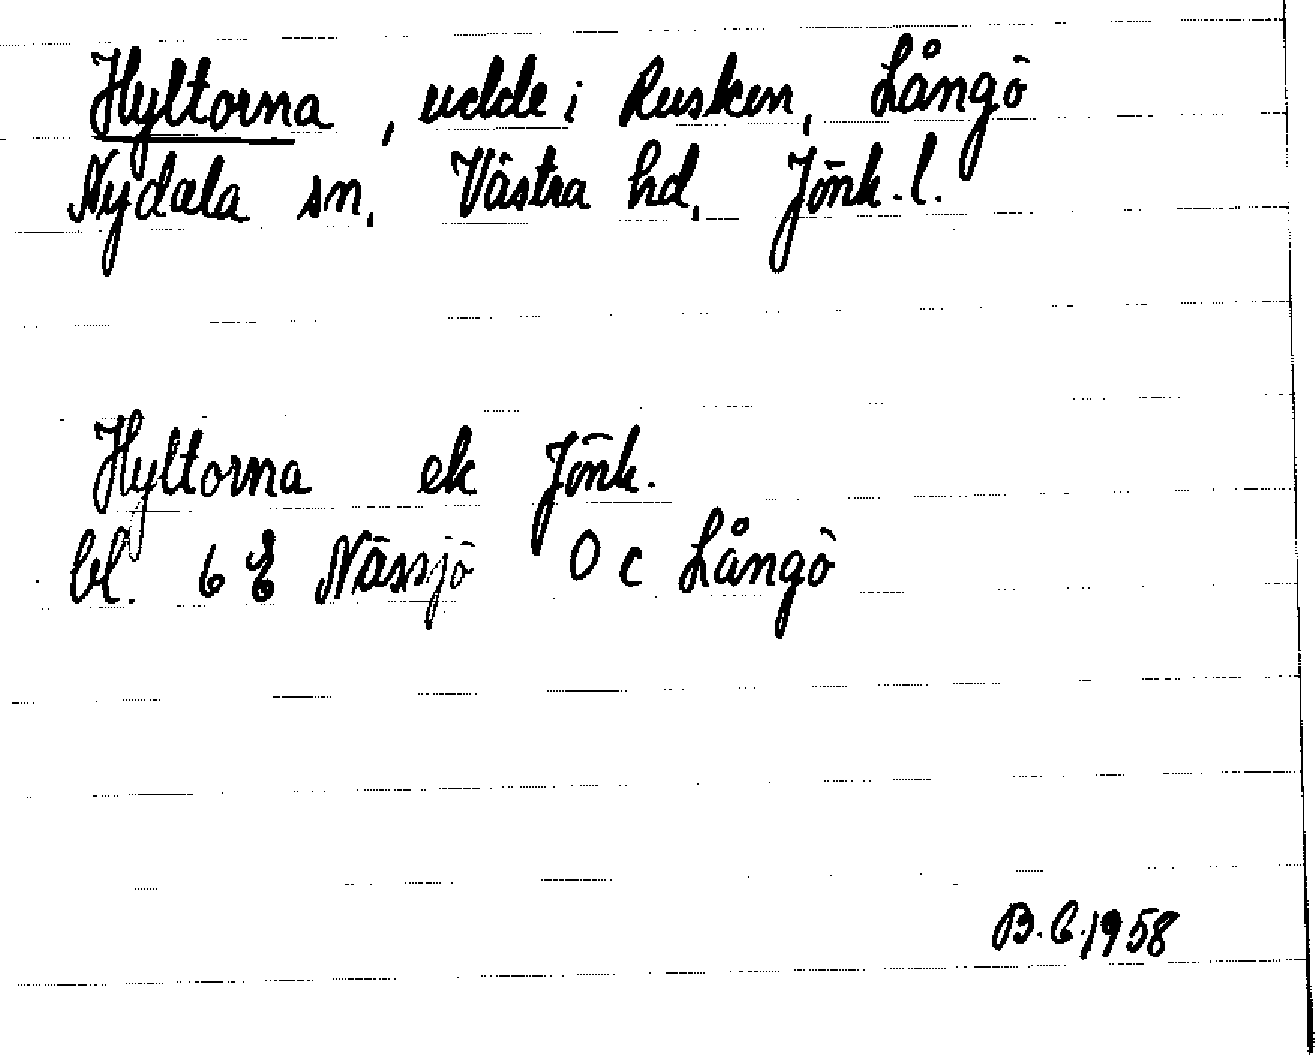 Hyltorna, udde i Rusken, Långö
Nydala sn, Västra hd, Jönk. l.
Hyltorna ek Jönk.
bl. 6 E Nässjö 0 c Långö
B. C. 1958